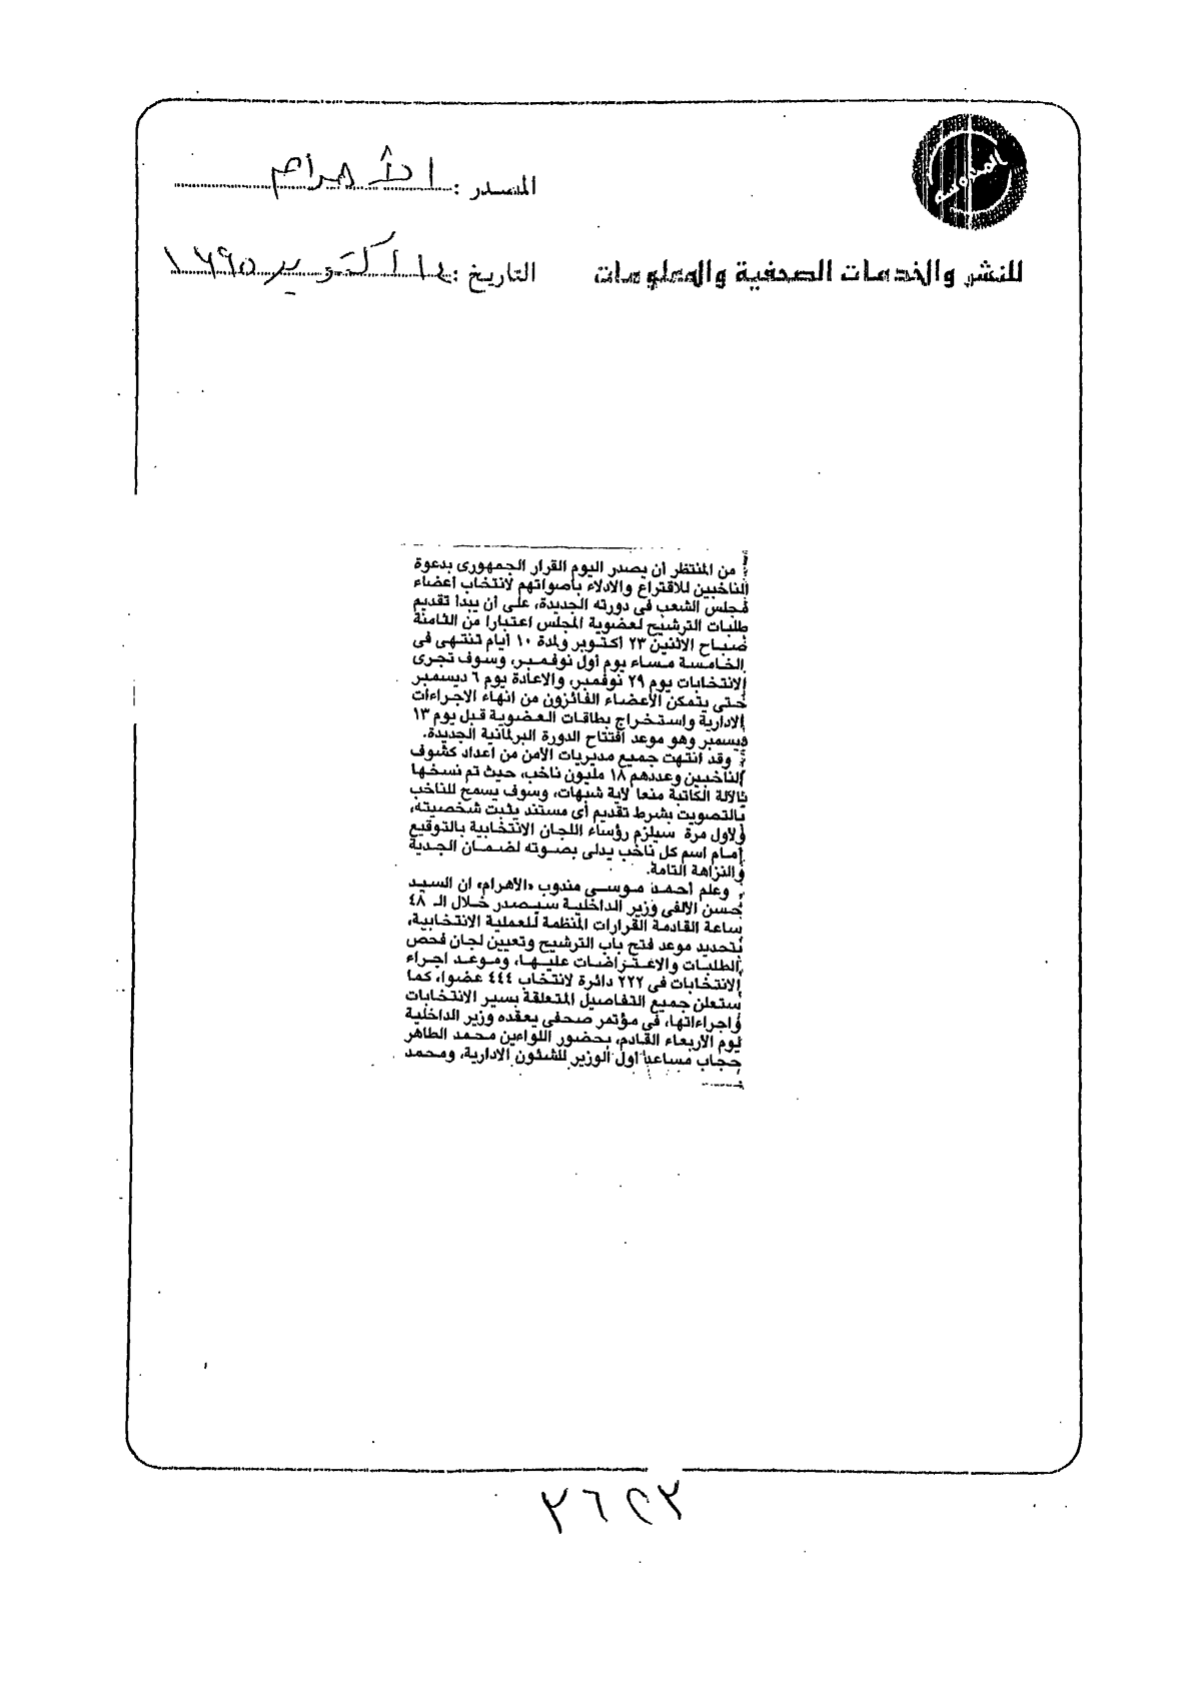 المصدر : الأهرام
للنشر والخدمات الصحفية والمعلومات
التاريخ : أكتوبر ١٩٩٥
من المنتظر أن يصدر اليوم القرار الجمهورى بدعوة
الناخبين للاقتراع والادلاء بأصواتهم لانتخاب اعضاء
مجلس الشعب فى دورته الجديدة، على أن يبدأ تقديم
طلبات الترشيح لعضوية المجلس اعتبارا من الثامنة
صباح الاثنين ٢٣ اكتوبر ولمدة ١٠ أيام تنتهى فى
الخامسة مساء يوم أول نوفمبر، وسوف تجرى
الانتخابات يوم ٢٩ نوفمبر، والاعادة يوم ٦ ديسمبر
حتى يتمكن الأعضاء الفائزون من انهاء الاجراءات
الادارية واستخراج بطاقات العضوية قبل يوم ١٣
ديسمبر وهو موعد افتتاح الدورة البرلمانية الجديدة.
وقد انتهت جميع مديريات الأمن من اعداد كشوف
الناخبين وعددهم ١٨ مليون ناخب، حيث تم نسخها
بالالة الكاتبة منعا لاية شبهات، وسوف يسمح للناخب
بالتصويت بشرط تقديم أى مستند يثبت شخصيته،
ولاول مرة سيلزم رؤساء اللجان الانتخابية بالتوقيع
أمام اسم كل ناخب يدلى بصوته لضمان الجدية
والنزاهة التامة.
وعلم أحمد موسى مندوب «الأهرام» ان السيد
حسن الالفى وزير الداخلية سيصدر خلال الـ ٤٨
ساعة القادمة القرارات المنظمة للعملية الانتخابية،
بتحديد موعد فتح باب الترشيح وتعيين لجان فحص
الطلبات والاعتراضات عليها، وموعد اجراء
الانتخابات فى ٢٢٢ دائرة لانتخاب ٤٤٤ عضوا، كما
ستعلن جميع التفاصيل المتعلقة بسير الانتخابات
واجراءاتها، في مؤتمر صحفى يعقده وزير الداخلية
يوم الاربعاء القادم، بحضور اللواءين محمد الطاهر
حجاب مساعد أول الوزير للشئون الادارية، ومحمد